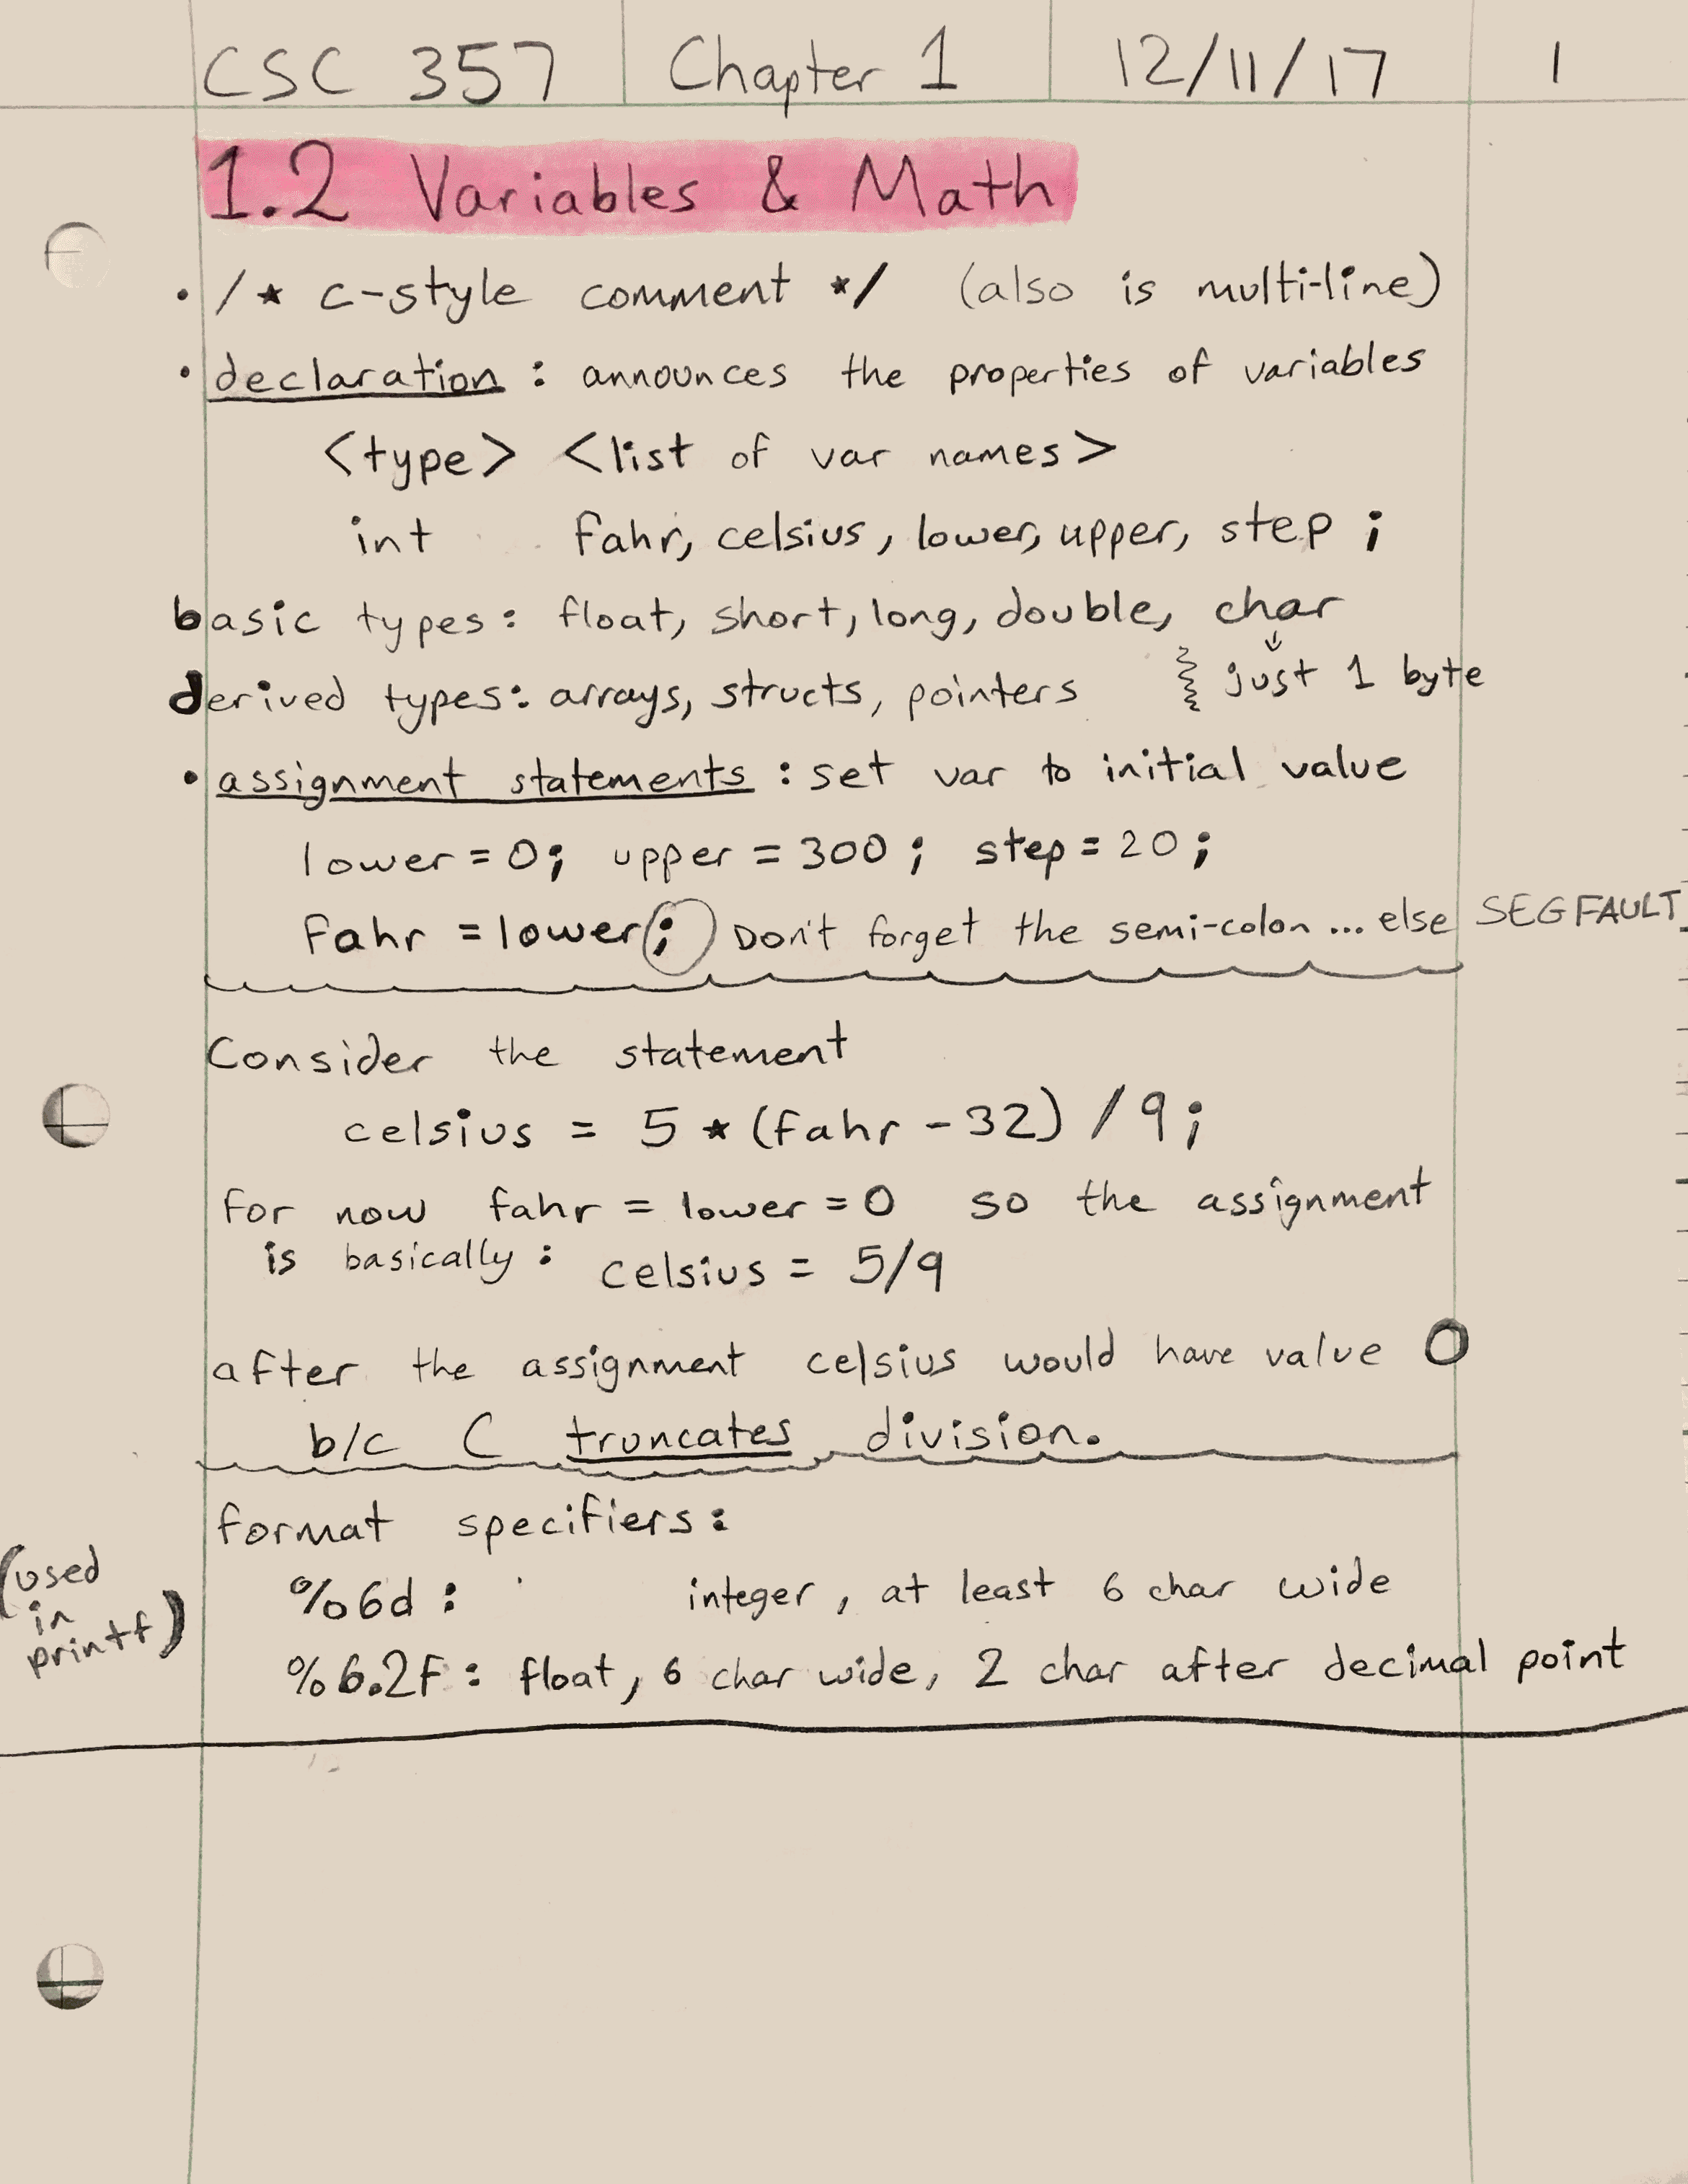 CSC 357 Chapter 1 12/11/17 1
1.2 Variables & Math
• /* c-style comment */ (also is multi-line)
• declaration : announces the properties of variables
<type> <list of var names>
int fahr, celsius, lower, upper, step ;
basic types: float, short, long, double, char
derived types: arrays, structs, pointers just 1 byte
• assignment statements : set var to initial value
lower = 0; upper = 300 ; step = 20 ;
fahr = lower ; Don't forget the semi-colon ... else SEGFAULT
Consider the statement
celsius = 5 * (fahr - 32) / 9 ;
for now fahr = lower = 0 so the assignment
is basically : celsius = 5/9
after the assignment celsius would have value 0
b/c C truncates division.
format specifiers :
(used
in
printf)
%6d : integer, at least 6 char wide
%6.2f : float, 6 char wide, 2 char after decimal point